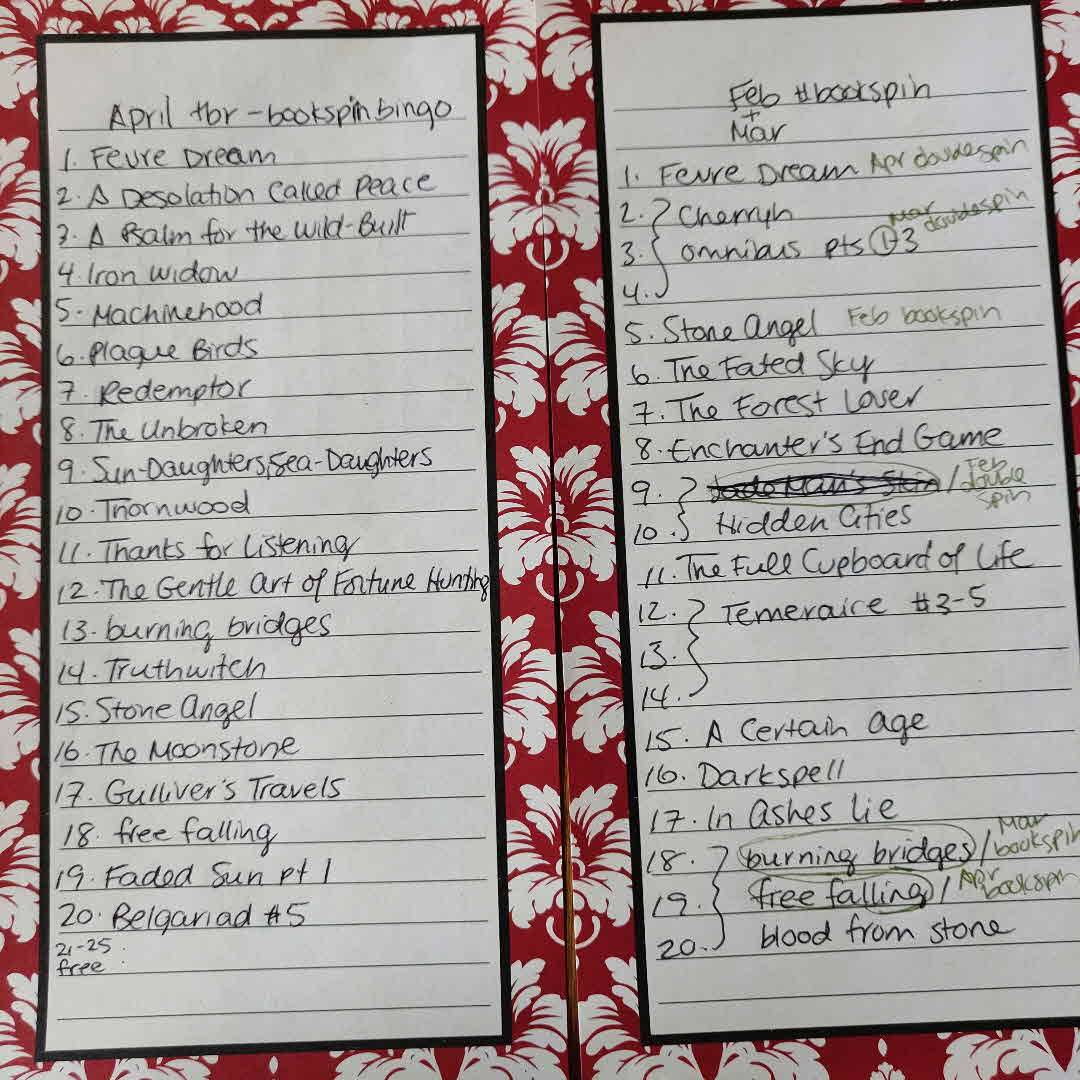 April tbr - bookspin bingo
1. Fevre Dream
2. A Desolation Called Peace
3. A Psalm for the Wild-Built
4. Iron Widow
5. Machinehood
6. Plague Birds
7. Redemptor
8. The Unbroken
9. Sun-Daughters, Sea-Daughters
10. Thornwood
11. Thanks for Listening
12. The Gentle Art of Fortune Hunting
13. burning bridges
14. Truthwitch
15. Stone Angel
16. The Moonstone
17. Gulliver's Travels
18. free falling
19. Faded Sun pt 1
20. Belgariad #5
21-25
free
Feb #bookspin
+
Mar
1. Fevre Dream Apr doublespin
2. Cherryh Mar
3. omnibus pts 1-3 doublespin
4.
5. Stone Angel Feb bookspin
6. The Fated Sky
7. The Forest Lover
8. Enchanter's End Game
9. Jade Man's Skin / Feb double spin
10. Hidden Cities
11. The Full Cupboard of Life
12. Temeraire #3-5
13.
14.
15. A Certain Age
16. Darkspell
17. In Ashes Lie
18. burning bridges / Mar bookspin
19. free falling / Apr bookspin
20. blood from stone